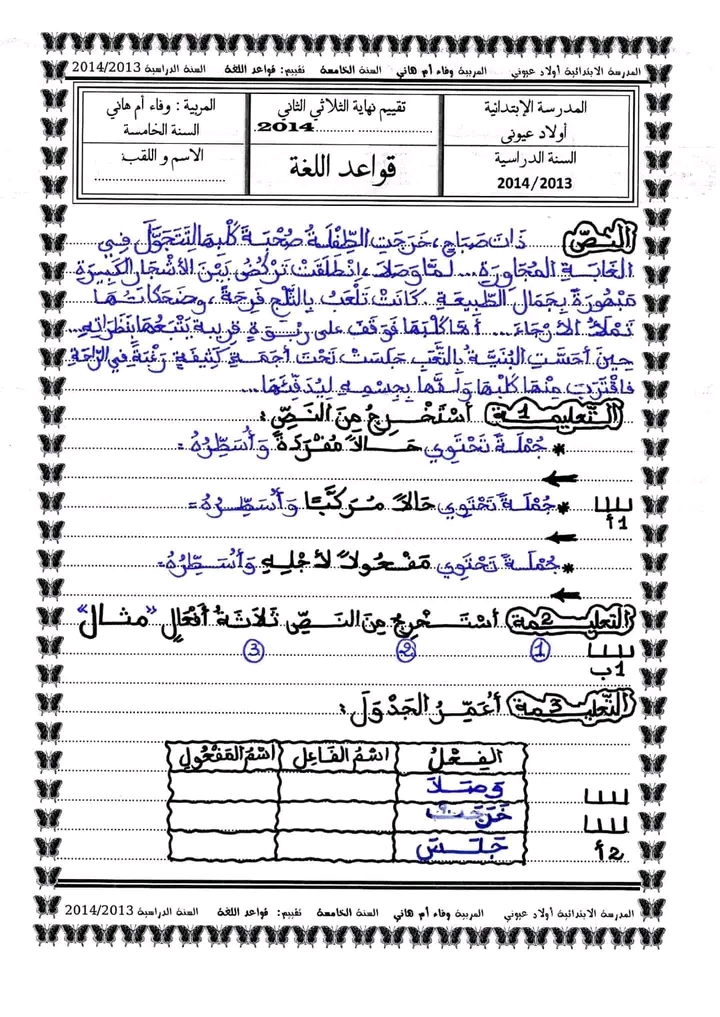 المدرسة الابتدائية أولاد عيوني المربية وفاء أم هاني السنة الخامسة تقييم: قواعد اللغة السنة الدراسية 2014/2013
المدرسة الإبتدائية
أولاد عيوني
السنة الدراسية
2014/2013
تقييم نهاية الثلاثي الثاني
2014
قواعد اللغة
المربية : وفاء أم هاني
السنة الخامسة
الاسم و اللقب:
النص ذَات صَبَاحٍ، خَرَجَتِ الطِّفْلَةُ صُحْبَةَ كَلْبِهَا لِتَتَجَوَّلَ فِي
الغَابَةِ المُجَاوِرَةِ... لَمَّا وَصَلَا، اِنْطَلَقَتْ تَرْكُضُ بَيْنَ الأَشْجَارِ الكَبِيرَةِ
مَبْهُورَةً بِجَمَالِ الطَّبِيعَةِ. كَانَتْ تَلْعَبُ بِالثَّلْجِ فَرِحَةً، وضَحَكَاتُهَا
تَمْلَأُ الأَرْجَاءَ.... أمَّا كَلْبُهَا فَوَقَفَ على رَبْوَةٍ قَرِيبَةٍ يَتْبَعُهَا بِنَظَرَاتِهِ...
حِينَ أَحَسَّتِ البُنَيَّةُ بِالتَّعَبِ جَلَسَتْ تَحْتَ أَجَمَةٍ كَثِيفَةٍ رَغْبَةً فِي الرَّاحَةِ
فَاقْتَرَبَ مِنْهَا كَلْبُهَا وَلَفَّهَا بِجِسْمِهِ لِيُدَفِّئَهَا...
التعليمة 1 أَسْتَخْرِجُ مِنَ النَصِّ :
* جُمْلَةً تَحْتَوِي حَالاً مُفْرَدَةً وَأُسَطِّرُهُ :
* جُمْلَةً تَحْتَوِي حَالاً مُرَكَّبًا وَأُسَطِّرُهُ :
1أ
* جُمْلَةً تَحْتَوِي مَفْعُولاً لأَجْلِهِ وَأُسَطِّرُهُ:
التعليمة 2 أسْتَخْرِجُ مِنَ النَصِّ ثَلَاثَةَ أَفْعَالٍ "مثال"
1 2 3
1ب
التعليمة 3 أُعَمِّرُ الجَدْوَلَ :
الفِعْلُ اسْمُ الفَاعِلِ اسْمُ المَفْعُولِ
وَصَلَا
خَرَجَتْ
جَلَسَ
2أ
المدرسة الابتدائية أولاد عيوني المربية وفاء أم هاني السنة الخامسة تقييم: قواعد اللغة السنة الدراسية 2014/2013